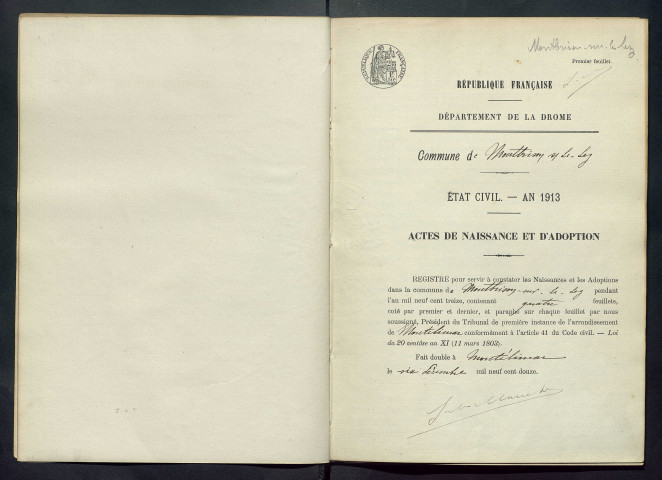 Montbrison-sur-le-Lez
Premier feuillet.
RÉPUBLIQUE FRANÇAISE
DÉPARTEMENT DE LA DROME
Commune de Montbrison s/ le-Lez
ÉTAT CIVIL. — AN 1913
ACTES DE NAISSANCE ET D'ADOPTION
REGISTRE pour servir à constater les Naissances et les Adoptions
dans la commune de Montbrison-sur-le-Lez pendant
l'an mil neuf cent treize, contenant quatre feuillets,
coté par premier et dernier, et paraphé sur chaque feuillet par nous
soussigné, Président du Tribunal de première instance de l'arrondissement
de Montélimar conformément à l'article 41 du Code civil. — Loi
du 20 ventôse an XI (11 mars 1803).
Fait double à Montélimar
le six Décembre mil neuf cent douze.